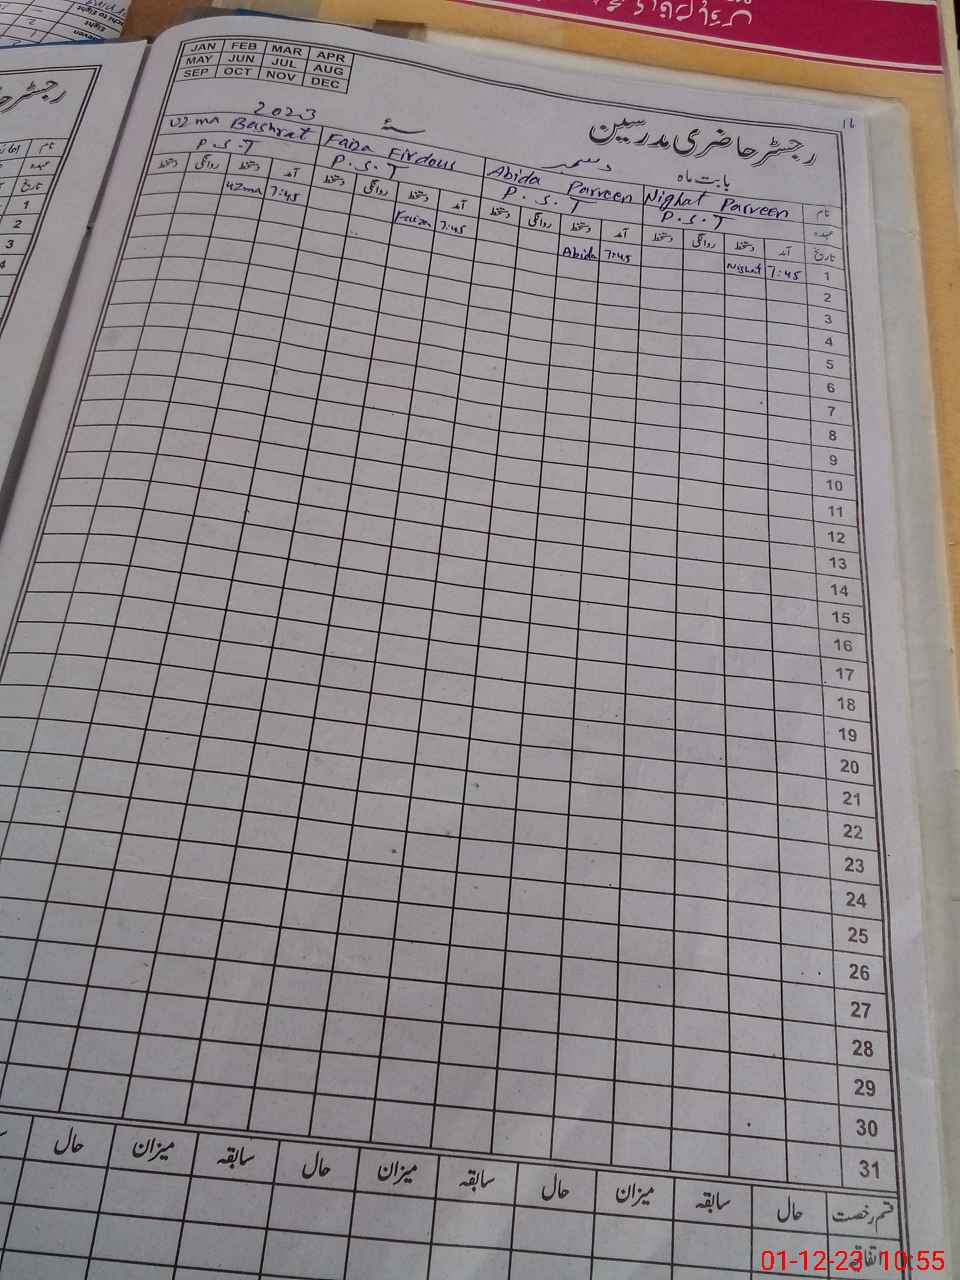 JAN FEB MAR APR
MAY JUN JUL AUG
SEP OCT NOV DEC
16
رجسٹر حاضری مدرسین
بابت ماہ دسمبر 2023
نام Nighat Parveen Abida Parveen Faiza Firdous Uzma Bashrat
عہدہ P.S.T P.S.T P.S.T P.S.T
تاریخ آمد دستخط روانگی دستخط آمد دستخط روانگی دستخط آمد دستخط روانگی دستخط آمد دستخط روانگی دستخط
1 7:45 Nighat 7:45 Abida 7:45 Faiza 7:45 Uzma
2
3
4
5
6
7
8
9
10
11
12
13
14
15
16
17
18
19
20
21
22
23
24
25
26
27
28
29
30
31
قسم رخصت حال سابقہ میزان حال سابقہ میزان حال سابقہ میزان حال
اتفاقیہ
01-12-23 10:55